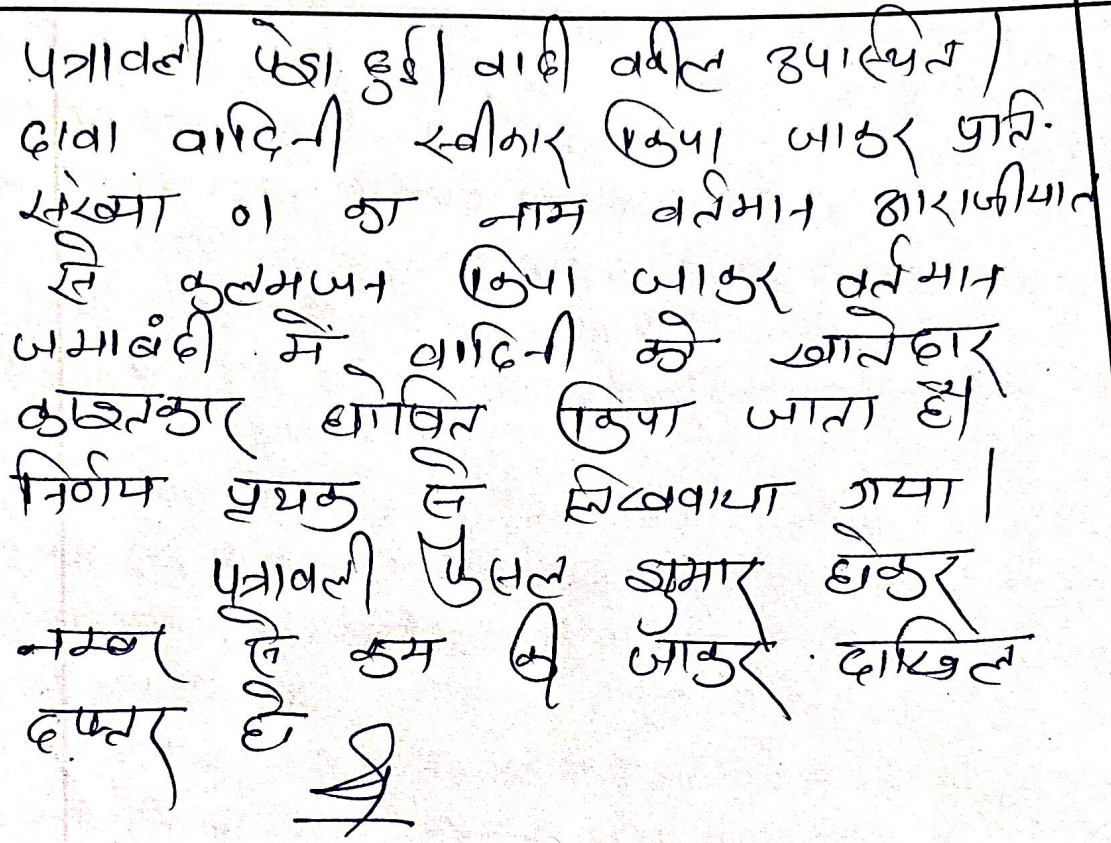 पत्रावली पेश हुई। वादी वकील उपस्थित।
दावा वादिनी स्वीकार किया जाकर प्रति.
संख्या 01 का नाम वर्तमान आराजीयात
से कुलमजन किया जाकर वर्तमान
जमाबंदी में वादिनी को खातेदार
काश्तकार घोषित किया जाता है।
निर्णय पृथक से लिखवाया गया।
पत्रावली फैसल शुमार होकर
नम्बर से कम की जाकर दाखिल
दफ्तर हो